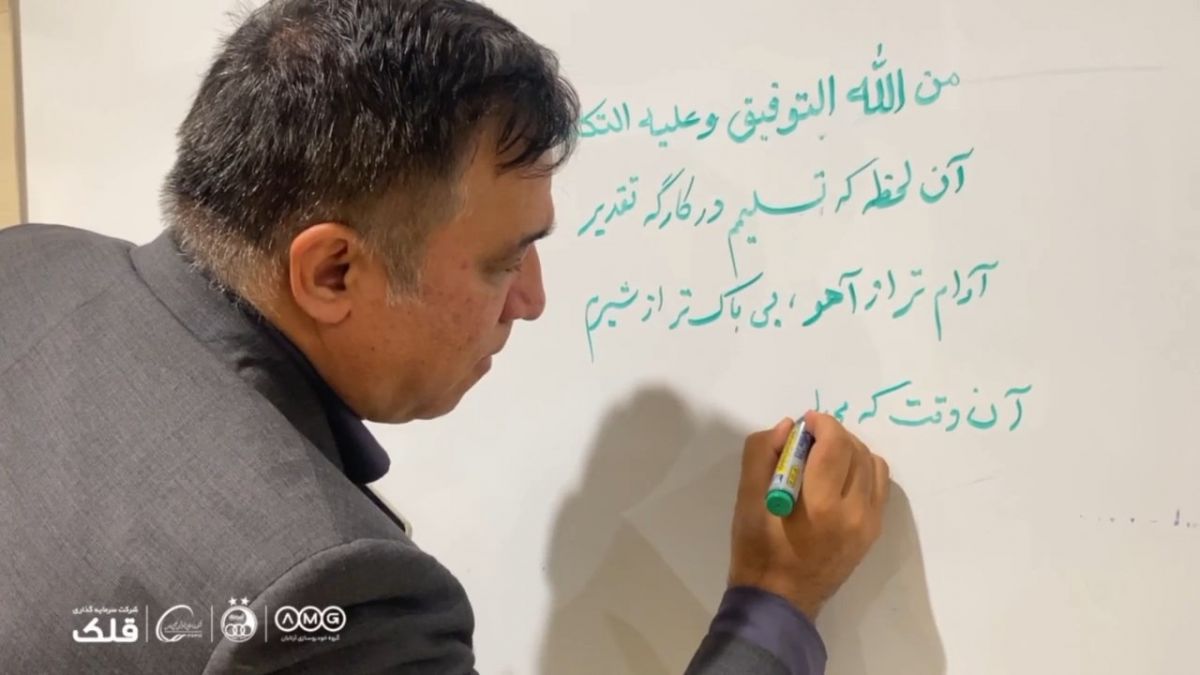 من الله التوفیق وعلیه التکل
آن لحظه که تسلیم در کارگه تقدیر
آرام تر از آهو ، بی باک تر از شیرم
آن وقت که می
شرکت سرمایه گذاری
قلک
AMG
گروه خودروسازی آرتابان